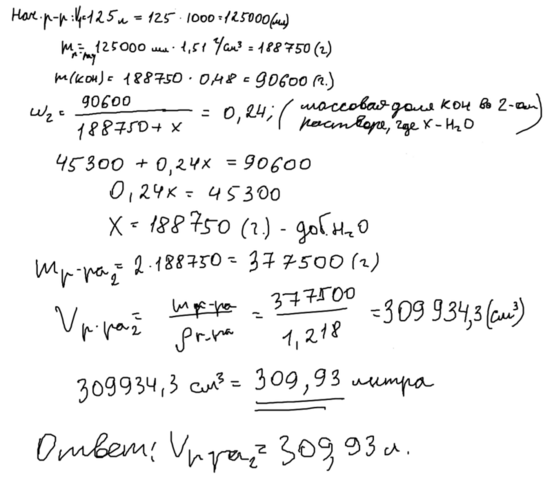 Нач. р-р: V₁=125 л = 125 · 1000 = 125000 (мл)
125000 мл · 1,51 г/см³ = 188750 (г)
m(KOH) = 188750 · 0,48 = 90600 (г.)
ω₂ = 90600 / 188750 + x = 0,24; (массовая доля KOH во 2-ом растворе, где X – H₂O
45300 + 0,24x = 90600
0,24x = 45300
X = 188750 (г.) - доб. H₂O
m р-ра₂ = 2 · 188750 = 377500 (г)
V р-ра₂ = m р-ра / ρ р-ра = 377500 / 1,218 = 309934,3 (см³)
309934,3 см³ = 309,93 литра
Ответ: V р-ра₂ = 309,93 л.